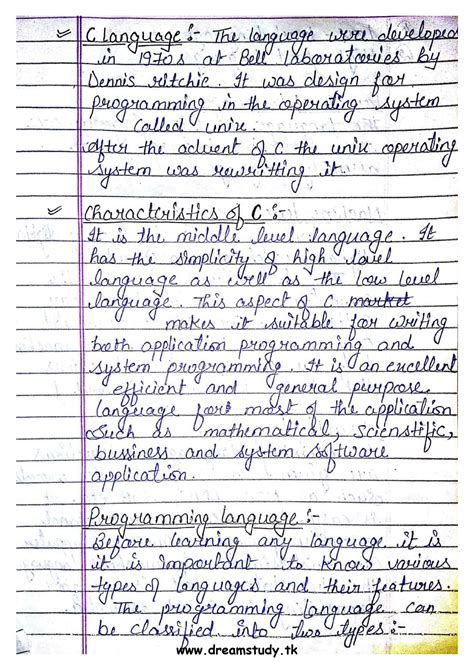 C language :- The language were developed
in 1970s at Bell laboratories by
Dennis ritchie. It was design for
programming in the operating system
called unix.
After the advent of C the unix operating
system was rewritting it.
Characteristics of C :-
It is the middle level language. It
has the simplicity of high level
language as well as the low level
language. This aspect of C market
makes it suitable for writing
both application programming and
system programming. It is an excellent
efficient and general purpose
language for most of the application
Such as mathematical, scienstific,
bussiness and system software
application.
Programming language :-
Before learning any language it is
it is important to know various
types of languages and their features.
The programming language can
be classified into two types :-
www.dreamstudy.tk